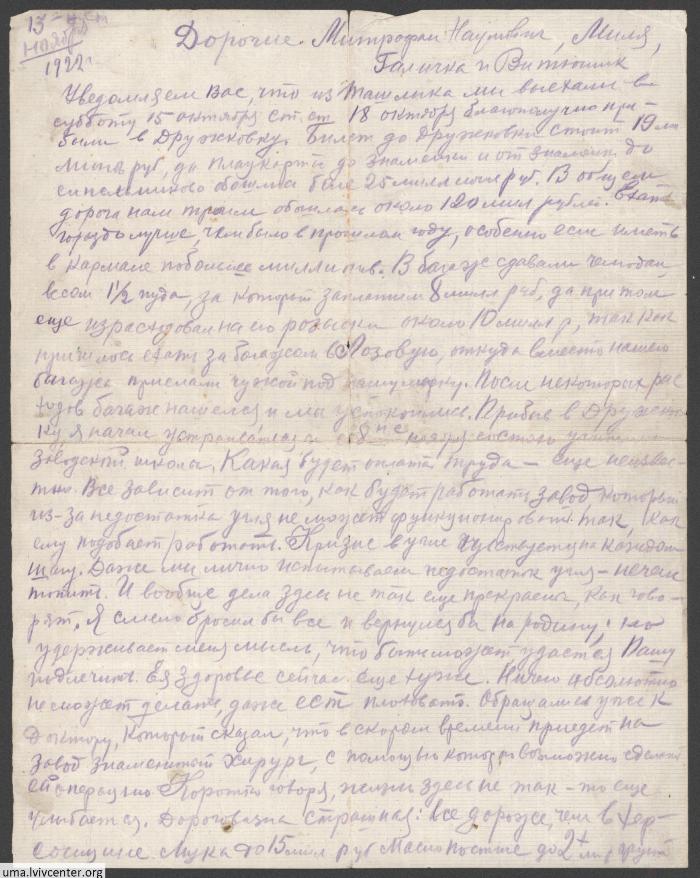 13 –
ноября
1922
Дорогие Митрофан Наумович, Миля,
Галичка и Витюшик
Уведомляем Вас, что из Ташлыка мы выехали в
субботу 15 октября ст. ст 18 октября благополучно при-
были в Дружковку. Билет до Дружковки стоит 19 ми
лион руб, да плацкарты до Знаменки и от Знамен. до
Синельниково обошли боле 25 миллионов руб. В общем
дорога нам троим обошлась около 120 мил рублей. Ехать
гораздо лучше, чем было в прошлом году, особенно если иметь
в кармане побольше миллионов. В багаж сдавали чемодан
весом 1½ пуда, за который заплатили 8 милл руб, да при том
еще израсходовал на его розыски около 10 милл р, так как
пришлось ехать за багажом в Лозовую, откуда вместо нашего
багажа прислали чужой под нашу марку. После некоторых рас
ходов багаж нашелся и мы успокоились. Прибыв в Дружков
ку, я начал устраиваться и 8 ноября состою
заводской школы. Какая будет оплата труда – еще неизвес-
тно. Все зависит от того, как будет работать завод, который
из-за недостатка угля не может функционировать так, как
ему подобает работать. Кризис в угле чувствуется на каждом
шагу. Даже мы лично испытываем недостаток угля – нечем
топить. И вообще дела здесь не так еще прекрасны, как гово-
рят. Я смело бросил бы все и вернулся бы на родину, но
удерживает меня мысль, что быть может удастся Пашу
подлечить. Ея здоровье сейчас еще хуже. Ничего абсолютно
не может делать, даже есть плоховато. Обращались уже к
доктору, который сказал, что в скором времени приедет на
завод знаменитый хирург, с помощью которого возможно сделать
ей операцию. Коротко говоря, жизнь здесь не так-то еще
улыбается. Дороговизна страшная: все дороже, чем в Хер-
сонщине. Мука до 15 мил руб Масло постное до 2 мил фунт
uma.lvivcenter.org